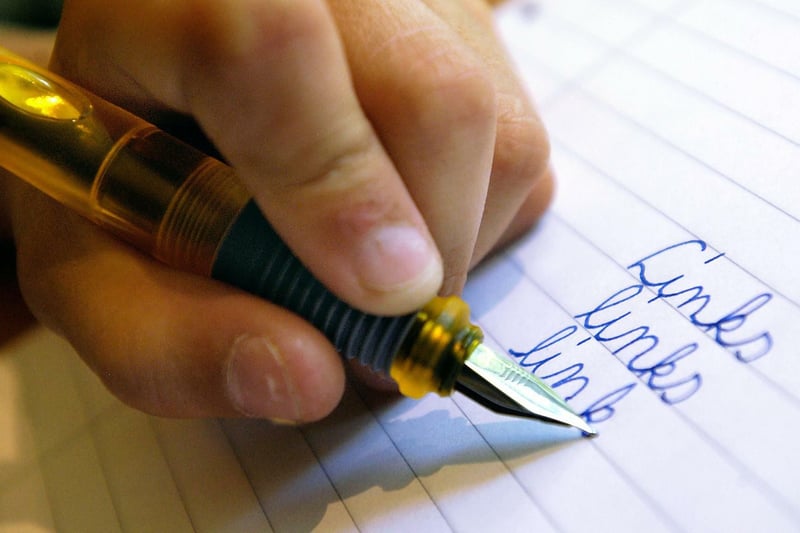 Links
links
link